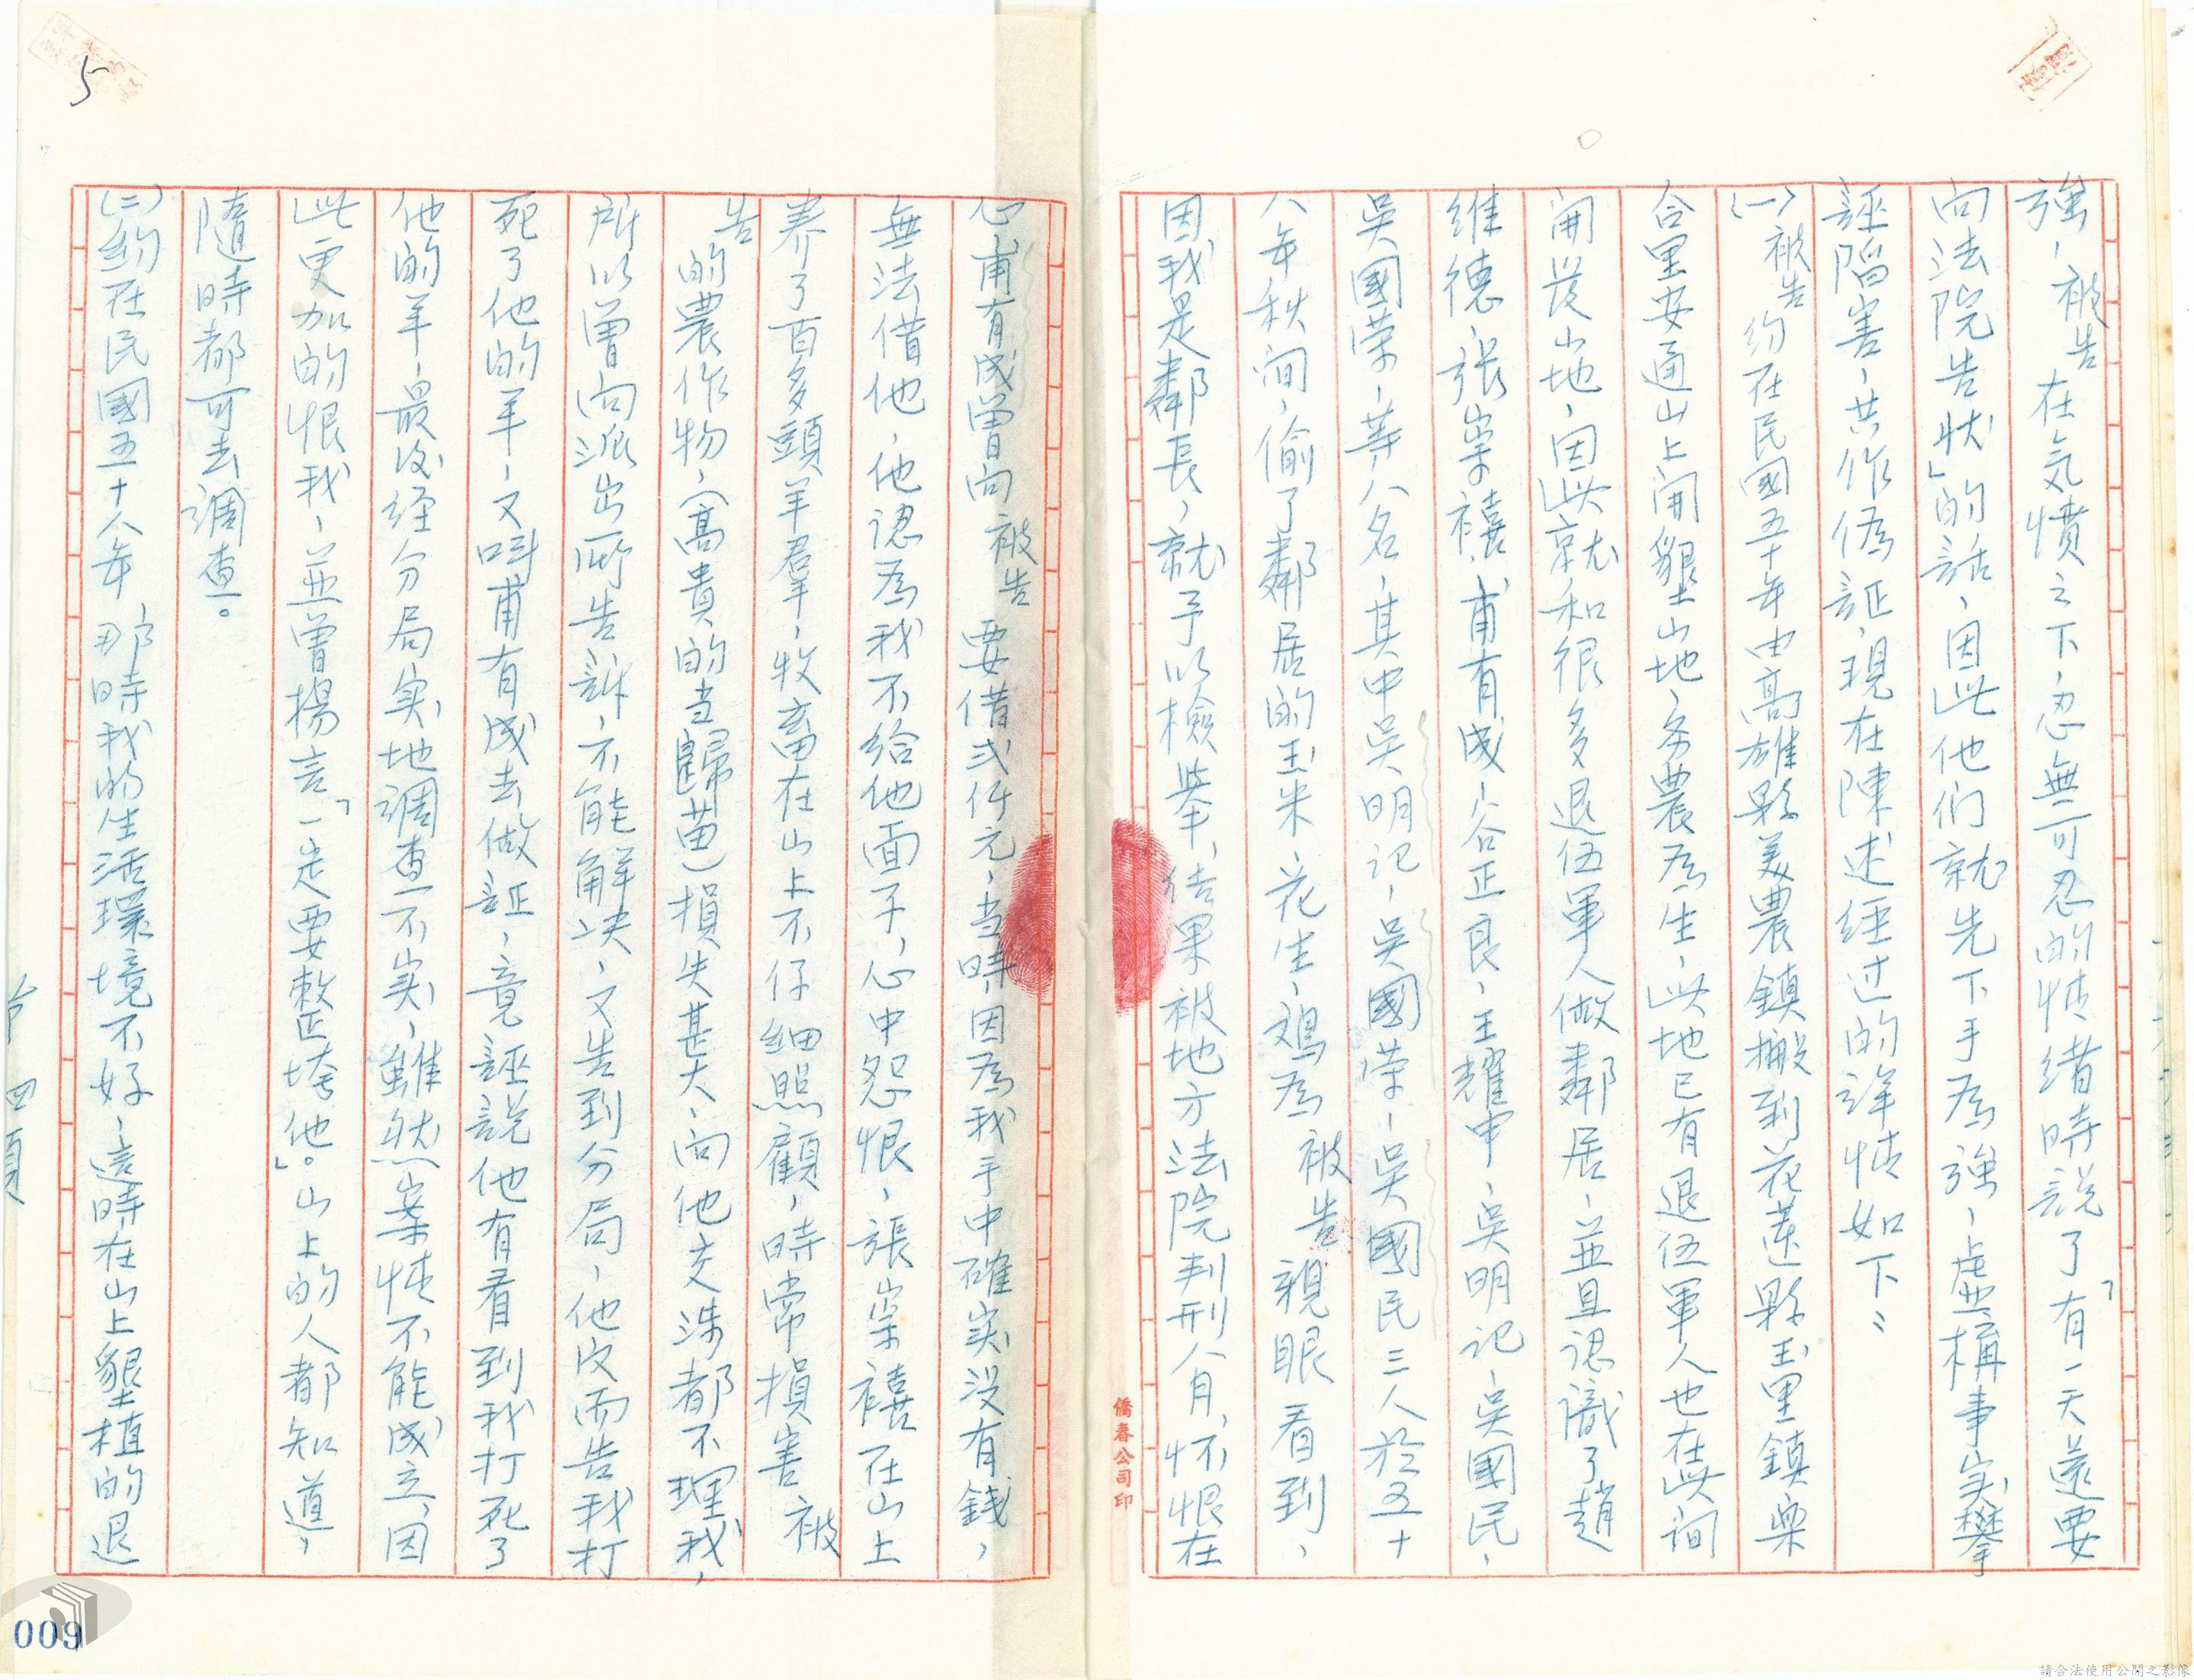 強，被告在気憤之下，忍無可忍的情绪時説了「有一天還要
向法院告狀」的話，因此他们就先下手為強，虛構事实攀
誣陷害，共作偽証，現在陳述经过的詳情如下：
(一)被告約在民國五十年由高雄縣美農鎮搬到花蓮縣玉里鎮樂
合里安通山上開墾山地，务農為生，此地已有退伍軍人也在此间
開发山地，因此就和很多退伍軍人做鄰居，並且认識了趙
維德，張崇禧，甫有成，谷正良，王耀申，吴明记，吴國民，
吴國荣，等八名，其中吴明记，吴國荣，吴國民三人於五十
八年秋间，偷了鄰居的玉米，花生，鸡為被告親眼看到，
因我是鄰長，就予以檢举，结果被地方法院判刑八月，怀恨在
心，甫有成曾向被告要借弍仟元，当時因為我手中確实没有錢，
無法借他，他認為我不给他面子，心中怨恨，張崇禧在山上
养了百多頭羊羣，牧畜在山上不仔細照顧，時常損害被
告的農作物，（高貴的当歸苗）損失甚大，向他交涉都不理我，
所以曾向派出所告訴，不能解决，又告到分局，他反而告我打
死了他的羊，又叫甫有成去做証，竟誣説他有看到我打死了
他的羊，最後经分局实地調查不实，雖然案情不能成立，因
此更加的恨我，並曾揚言「一定要整垮他」。山上的人都知道，
隨時都可去調查。
(二)約在民國五十八年，那時我的生活環境不好，這時在山上墾植的退
僑春公司印
5
009
請合法使用公開之影像